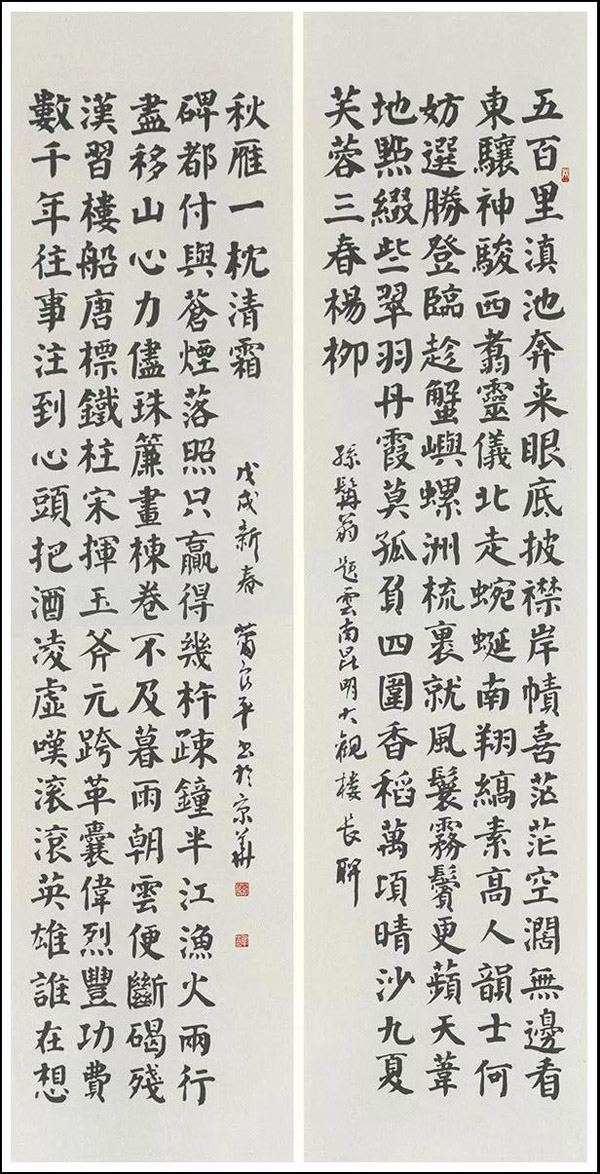 五百里滇池奔来眼底披襟岸幘喜茫茫空濶無邊看
東驤神駿西翥靈儀北走蜿蜒南翔縞素高人韻士何
妨選勝登臨趁蟹嶼螺洲梳裹就風鬟霧鬢更蘋天葦
地點綴些翠羽丹霞莫孤負四圍香稻萬頃晴沙九夏
芙蓉三春楊柳
孫髯翁題雲南昆明大觀樓長聯
數千年往事注到心頭把酒凌虛嘆滚滚英雄誰在想
漢習樓船唐標鐵柱宋揮玉斧元跨革囊偉烈豐功費
盡移山心力儘珠簾畫棟卷不及暮雨朝雲便斷碣殘
碑都付與蒼煙落照只贏得幾杵疎鐘半江漁火兩行
秋雁一枕清霜
戊戌新春 良平書於京華